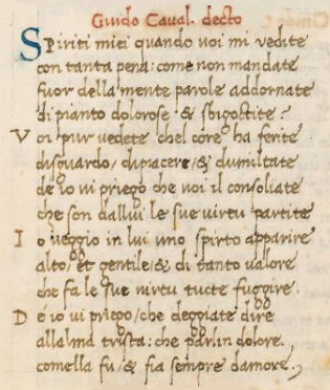 Guido Caval. decto
Spiriti miei quando uoi mi uedite
con tanta pena: come non mandate
fuor della mente parole addornate
di pianto dolorose & sbigoctite?
Voi pur uedete chel core ha ferite
disguardo/ dipiacere/& dumiltate
de io ui priego che uoi il consoliate
che son dallui le sue uirtu partite
Io ueggio in lui uno spirto apparire
alto/ et gentile/& di tanto ualore
che fa le sue uirtu tucte fuggire.
De io ui priego/ che deggiate dire
allalma trista: che parlin dolore.
comella fu/& fia sempre damore.,